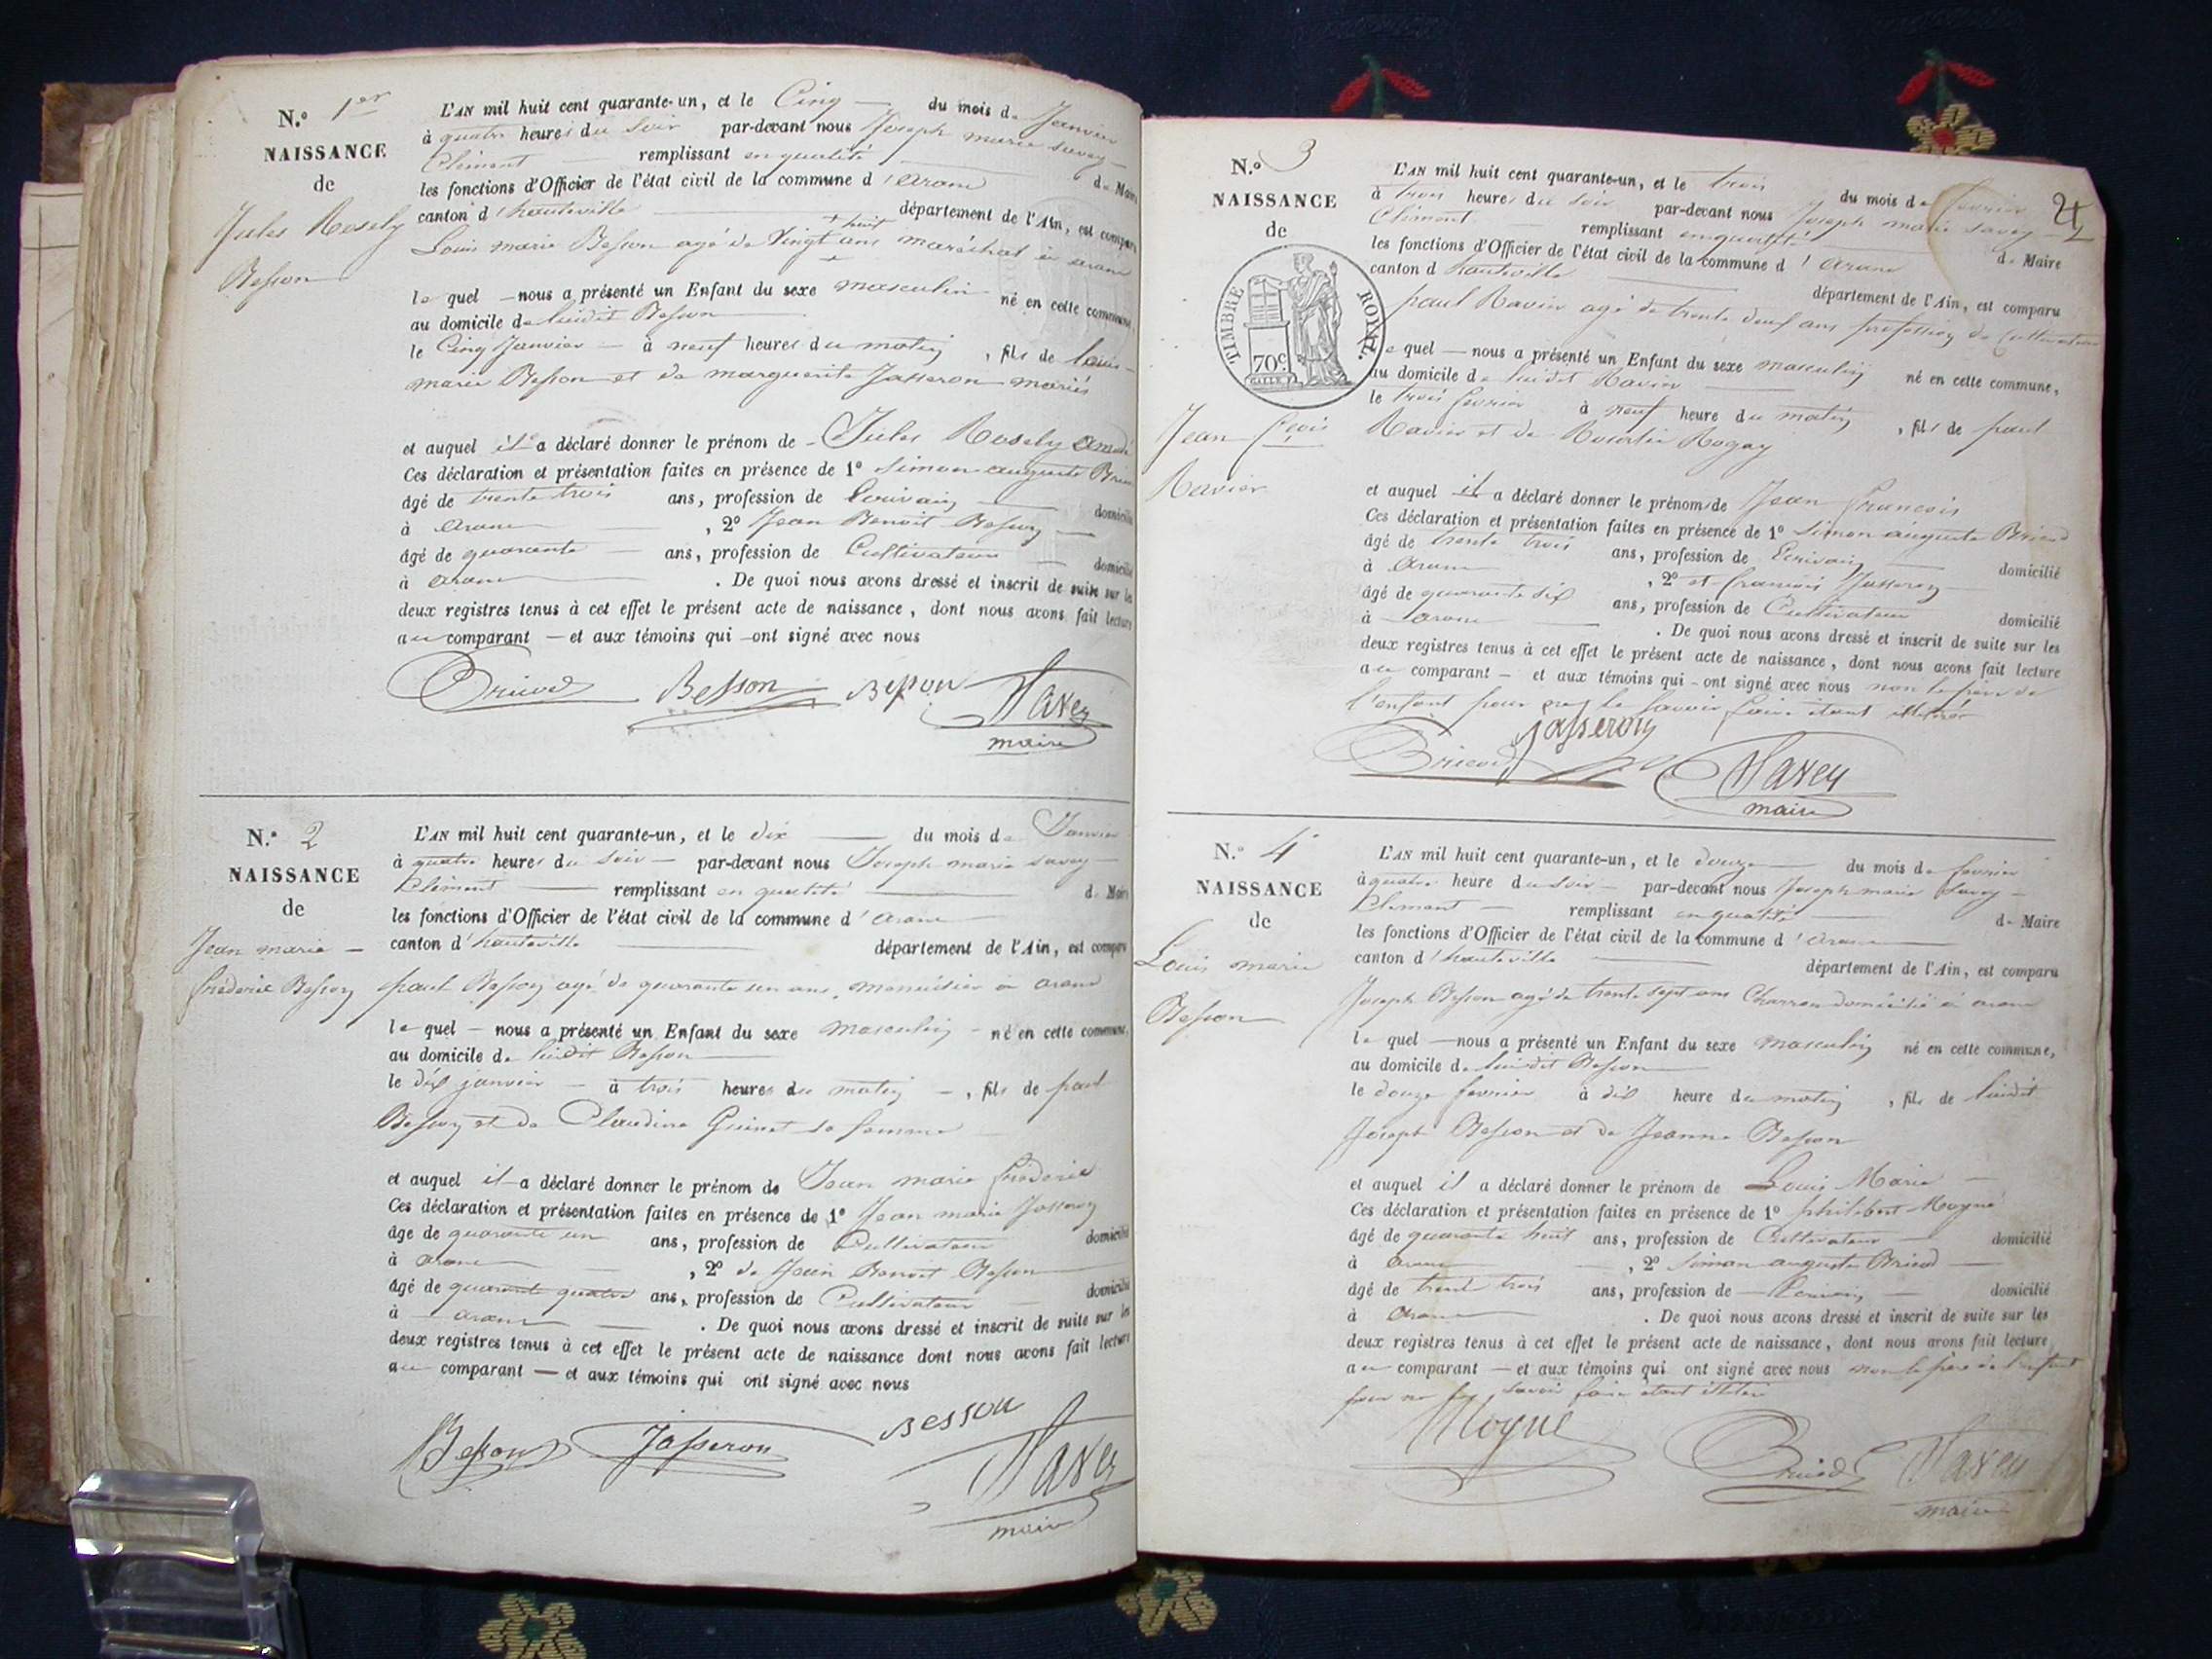 N.° 1er
NAISSANCE
de
Jules Rosely
Besson
L'AN mil huit cent quarante-un, et le Cinq du mois de Janvier
à quatre heures du Soir par-devant nous Joseph marie savey
Clément remplissant en qualité de Maire
les fonctions d'Officier de l'état civil de la commune d'arane
canton d'hauteville département de l'Ain, est comparu
Louis marie Besson agé de Vingt huit ans maréchal à arane
le quel nous a présenté un Enfant du sexe masculin né en cette commune,
au domicile de ludit Besson
le Cinq Janvier à neuf heures du matin, fils de louis
marie Besson et de marguerite Jasseron mariés
et auquel il a déclaré donner le prénom de Jules Rosely
Ces déclaration et présentation faites en présence de 1° Simon auguste
âgé de trente trois ans, profession de Ecrivain domicilié
à arane, 2° Jean Benoit Besson
âgé de quarante ans, profession de Cultivateur domicilié
à arane. De quoi nous avons dressé et inscrit de suite sur les
deux registres tenus à cet effet le présent acte de naissance, dont nous avons fait lecture
au comparant et aux témoins qui ont signé avec nous
Besson Besson Savey
maire
N.° 2
NAISSANCE
de
Jean marie
fréderic Besson
L'AN mil huit cent quarante-un, et le dix du mois de Janvier
à quatre heures du Soir par-devant nous Joseph marie savey
Clément remplissant en qualité de Maire
les fonctions d'Officier de l'état civil de la commune d'arane
canton d'hauteville département de l'Ain, est comparu
paul Besson agé de quarante un ans, menuisier à arane
le quel nous a présenté un Enfant du sexe masculin né en cette commune,
au domicile de ludit Besson
le dix janvier à trois heures du matin, fils de paul
Besson et de Claudine Guinet sa femme
et auquel il a déclaré donner le prénom de Jean marie fréderic
Ces déclaration et présentation faites en présence de 1° Jean marie Jasseron
âge de quarante un ans, profession de Cultivateur domicilié
à arane, 2° de Jean Benoit Besson
âgé de quarante quatre ans, profession de Cultivateur domicilié
à arane. De quoi nous avons dressé et inscrit de suite sur les
deux registres tenus à cet effet le présent acte de naissance dont nous avons fait lecture
au comparant et aux témoins qui ont signé avec nous
Besson Jasseron Besson
Savey
maire
N.° 3
NAISSANCE
de
TIMBRE ROYAL.
70c.
Jean fçois
Ravier
L'AN mil huit cent quarante-un, et le trois du mois de fevrier
à trois heures du soir par-devant nous Joseph marie savey
Clément remplissant en qualité de Maire
les fonctions d'Officier de l'état civil de la commune d'arane
canton d'hauteville département de l'Ain, est comparu
paul Ravier agé de trente deux ans profession de Cultivateur
le quel nous a présenté un Enfant du sexe masculin né en cette commune,
au domicile de ludit Ravier
le trois fevrier à neuf heure du matin, fils de paul
Ravier et de
et auquel il a déclaré donner le prénom de Jean francois
Ces déclaration et présentation faites en présence de 1° Simon auguste
âgé de trente trois ans, profession de Ecrivain domicilié
à arane, 2° et francois Jasseron
âgé de quarante six ans, profession de Cultivateur domicilié
à arane. De quoi nous avons dressé et inscrit de suite sur les
deux registres tenus à cet effet le présent acte de naissance, dont nous avons fait lecture
au comparant et aux témoins qui ont signé avec nous non le père de
l'enfant pour pas le savoir faire étant
Jasseron
Savey
maire
N.° 4
NAISSANCE
de
Louis marie
Besson
L'AN mil huit cent quarante-un, et le douze du mois de fevrier
à quatre heure du soir par-devant nous Joseph marie savey
Clément remplissant en qualité de Maire
les fonctions d'Officier de l'état civil de la commune d'arane
canton d'hauteville département de l'Ain, est comparu
Joseph Besson agé de trente sept ans Charron domicilié à arane
le quel nous a présenté un Enfant du sexe masculin né en cette commune,
au domicile de ludit Besson
le douze fevrier à dix heure du matin, fils de ludit
Joseph Besson et de Jeanne Besson
et auquel il a déclaré donner le prénom de Louis Marie
Ces déclaration et présentation faites en présence de 1° philibert Moyne
âgé de quarante huit ans, profession de Cultivateur domicilié
à arane, 2° Simon auguste
âgé de trente trois ans, profession de Ecrivain domicilié
à arane. De quoi nous avons dressé et inscrit de suite sur les
deux registres tenus à cet effet le présent acte de naissance, dont nous avons fait lecture
au comparant et aux témoins qui ont signé avec nous non le père de l'enfant
pour ne pas savoir faire étant
Moyne
Savey
maire